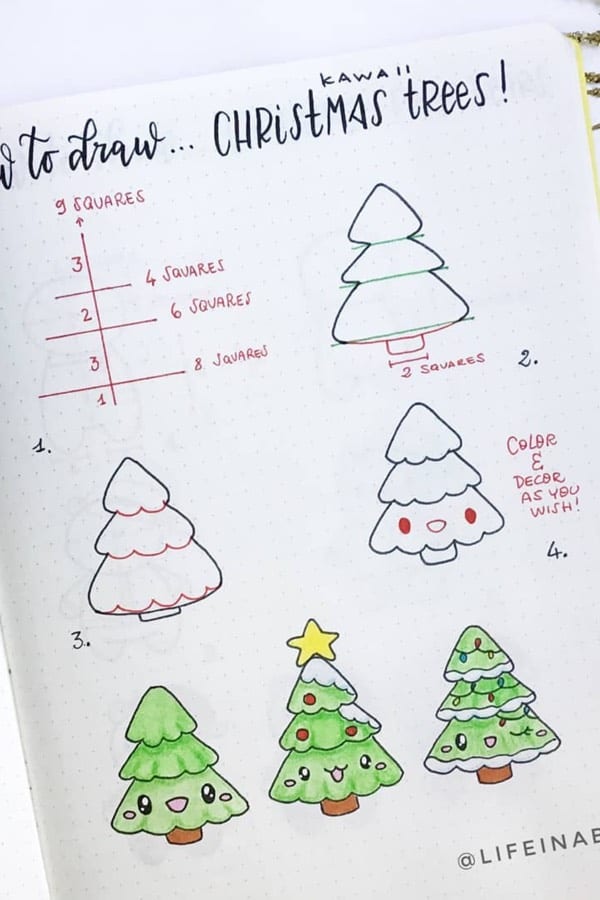 to draw... CHRiStMAS tRees!
KAWAII
9 SQUARES
3
4 SQUARES
2
6 SQUARES
3
8 SQUARES
1
1.
2 SQUARES
2.
COLOR
&
DECOR
AS YOU
WISH!
3.
4.
@LIFEINAB